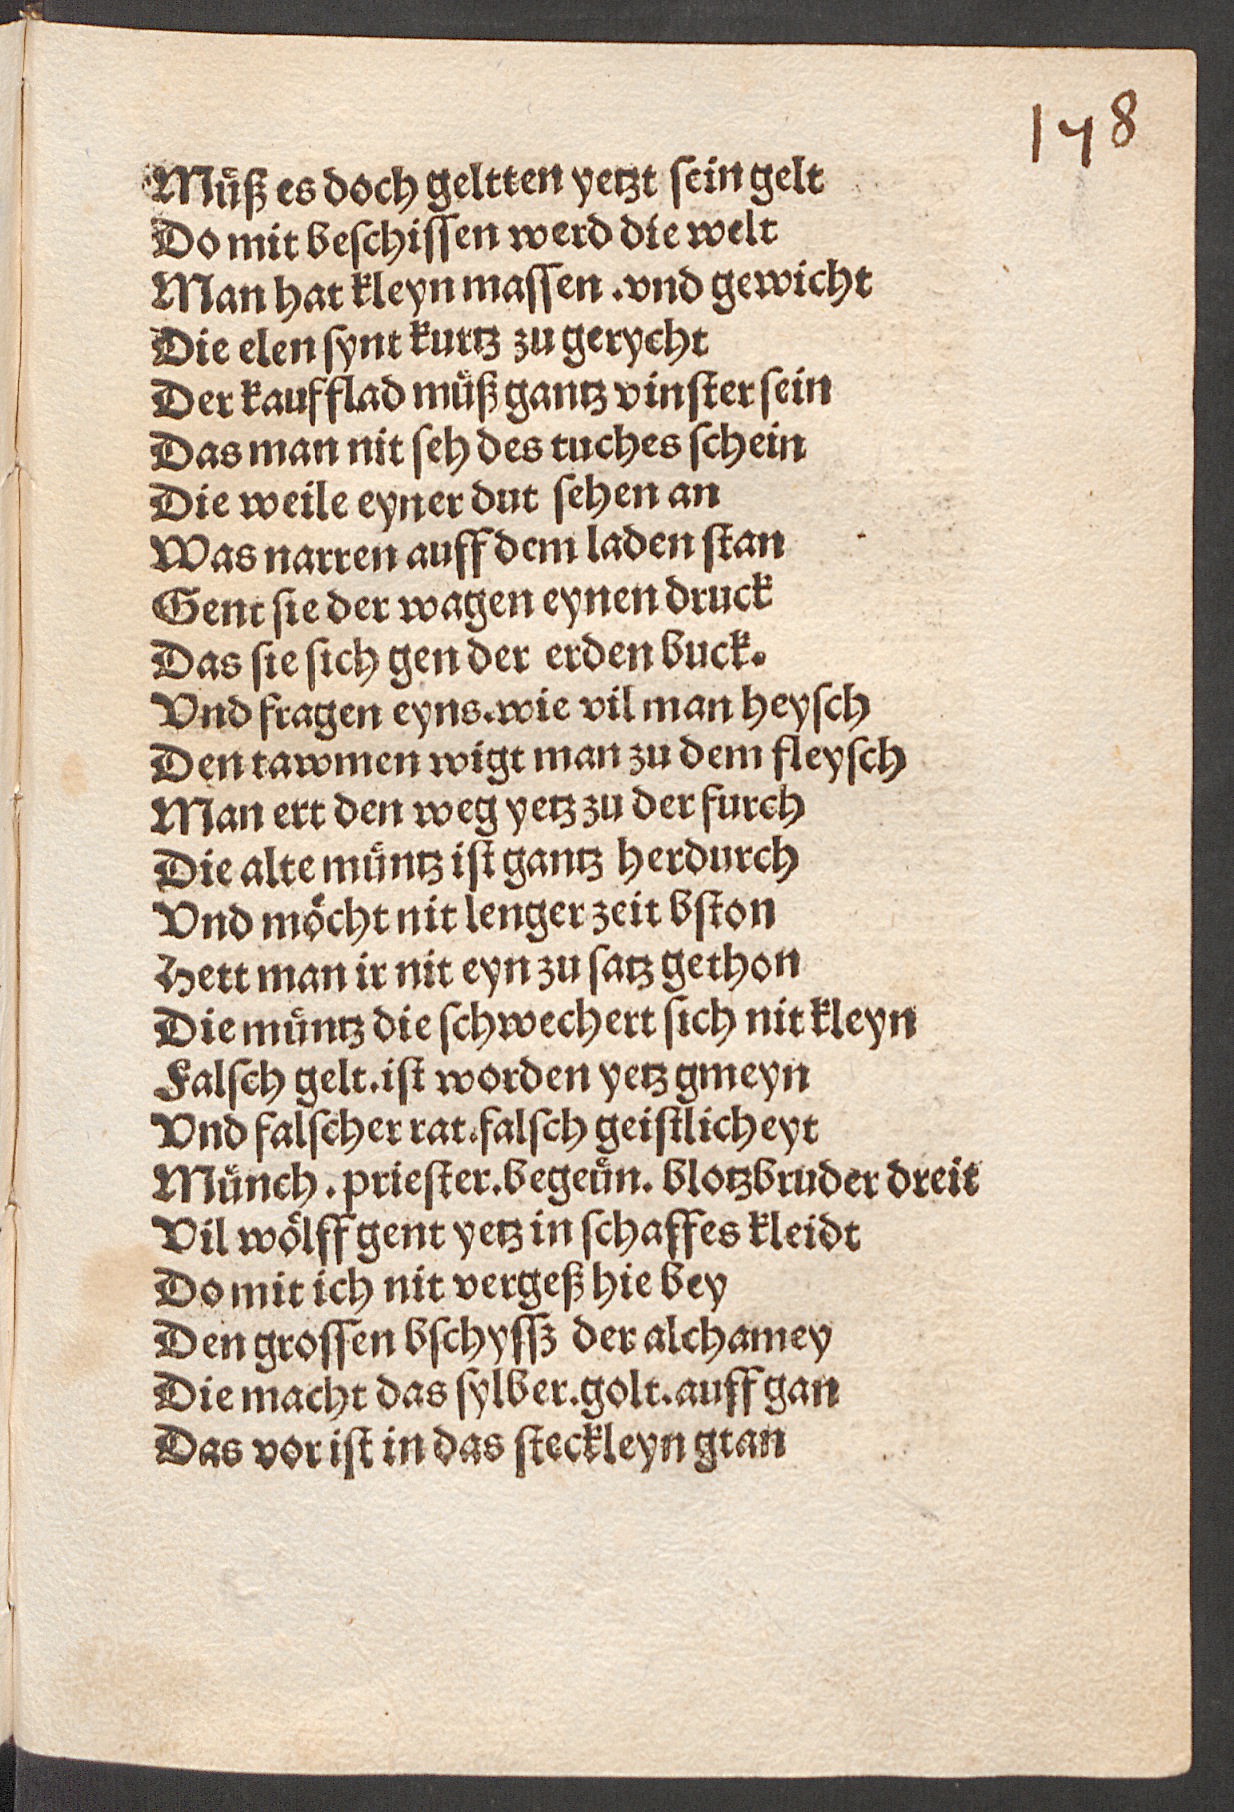 178
Muͤß es doch geltten yetzt ſein gelt
Do mit beſchiſſen werd die welt
Man hat kleyn maſſen .vnd gewicht
Die elen ſynt kurtz zu gerycht
Der kaufflad muͤß gantz vinſter ſein
Das man nit ſeh des tuches ſchein
Die weile eyner dut ſehen an
Was narren auff dem laden ſtan
Gent ſie der wagen eynen druck
Das ſie ſich gen der erden buck.
Vnd fragen eyns.wie vil man heyſch
Den tawmen wigt man zu dem fleyſch
Man ert den weg yetz zu der furch
Die alte muͤntz iſt gantz herdurch
Vnd moͤcht nit lenger zeit bſton
Hett man ir nit eyn zu ſatz gethon
Die muͤntz die ſchwechert ſich nit kleyn
Falſch gelt.iſt worden yetz gmeyn
Vnd falſcher rat.falſch geiſtlicheyt
Muͤnch.prieſter.begeuͤn. blotzbruder dreit
Vil woͤlff gent yetz in ſchaffes kleidt
Do mit ich nit vergeß hie bey
Den groſſen bſchyſſz der alchamey
Die macht das ſylber.golt.auff gan
Das vor iſt in das ſteckleyn gtan